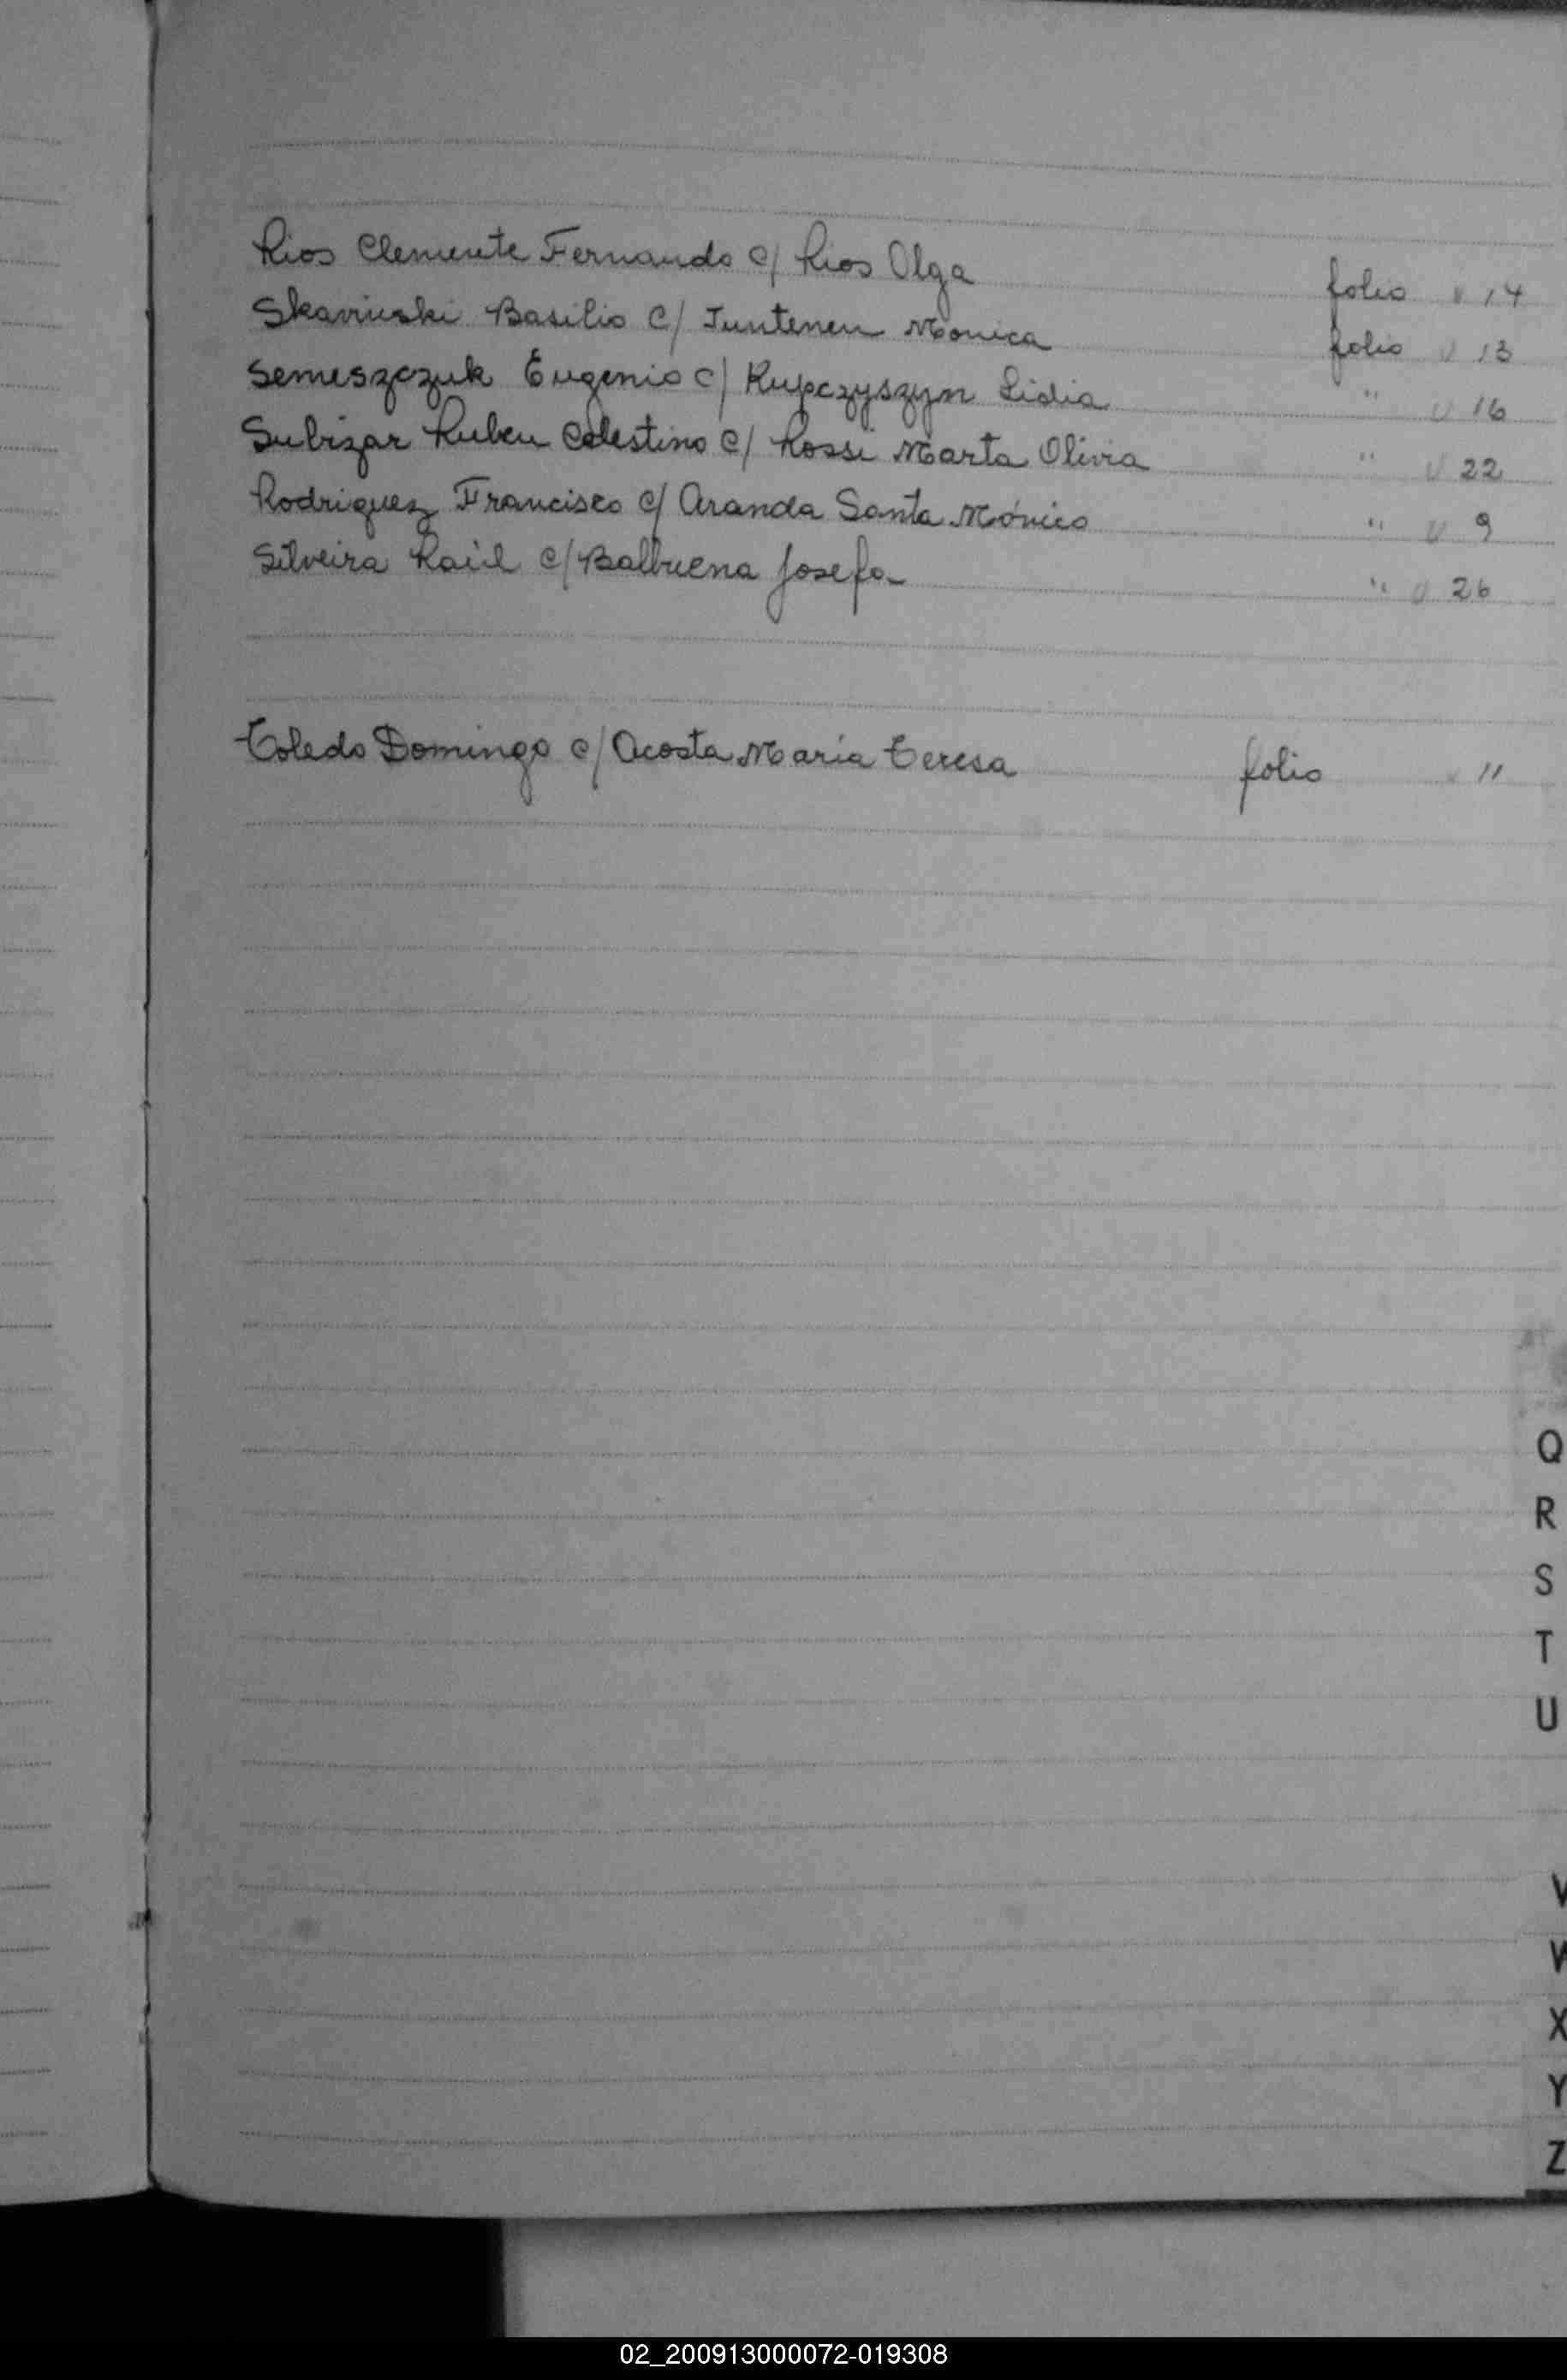 Rios Clemente Fernando c/ Rios Olga folio v 14
Skavinski Basilio c/ Juntenen Monica folio v 13
Semeszczuk Eugenio c/ Kupczyszyn Lidia " v 16
Subizar Ruben Celestino c/ Rossi Marta Olivia " v 22
Rodriguez Francisco c/ Aranda Santa Mónica " v 9
Silveira Raúl c/ Balbuena Josefa " v 26
Toledo Domingo c/ Acosta María Teresa folio v 11
Q
R
S
T
U
V
W
X
Y
Z
02_200913000072-019308